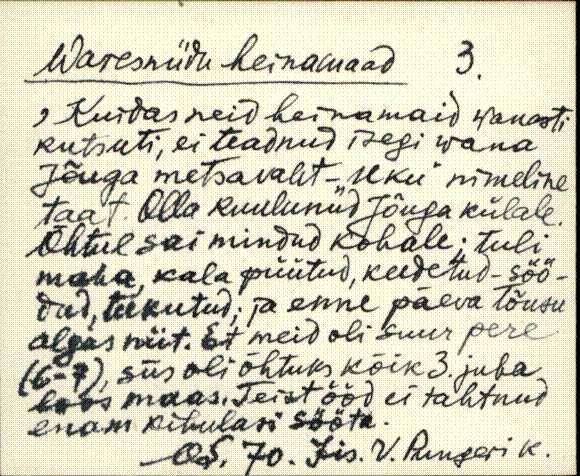 Waresniidu heinamaad 3.
, Kuidas neid heinamaid wanasti
kutsuti, ei teadnud isegi wana
Jõuga metsavaht - Uku" nimeline
taat. Olla kuulunud Jõuga külale.
Õhtul sai mindud kohale; tuli
maha, kala püütud, keedetud - söö-
dud, tukutud, ja enne päeva tõusu
algas niit. Et meid oli suur pere
(6-7), siis oli õhtuks kõik 3. juba
loos maas. Teist ööd ei tahtnud
enam kihulasi sööta.
70. V. Pungerik.